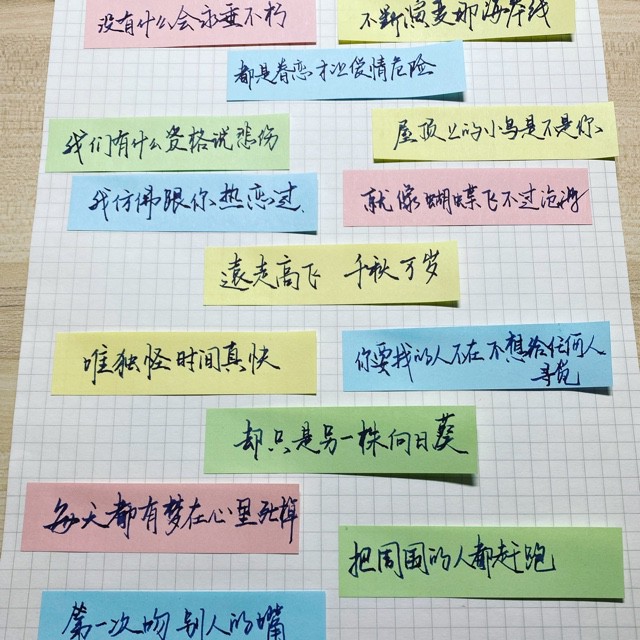 没有什么会永垂不朽
不断演变那海岸线
都是眷恋才让爱情危险
我们有什么资格说悲伤
屋顶上的小鸟是不是你
我仿佛跟你热恋过
就像蝴蝶飞不过沧海
遠走高飞 千秋万岁
唯独怪时间真快
你要找的人不在 不想给任何人
寻觅
却只是另一株向日葵
每天都有梦在心里死掉
把周围的人都赶跑
第一次吻别人的嘴